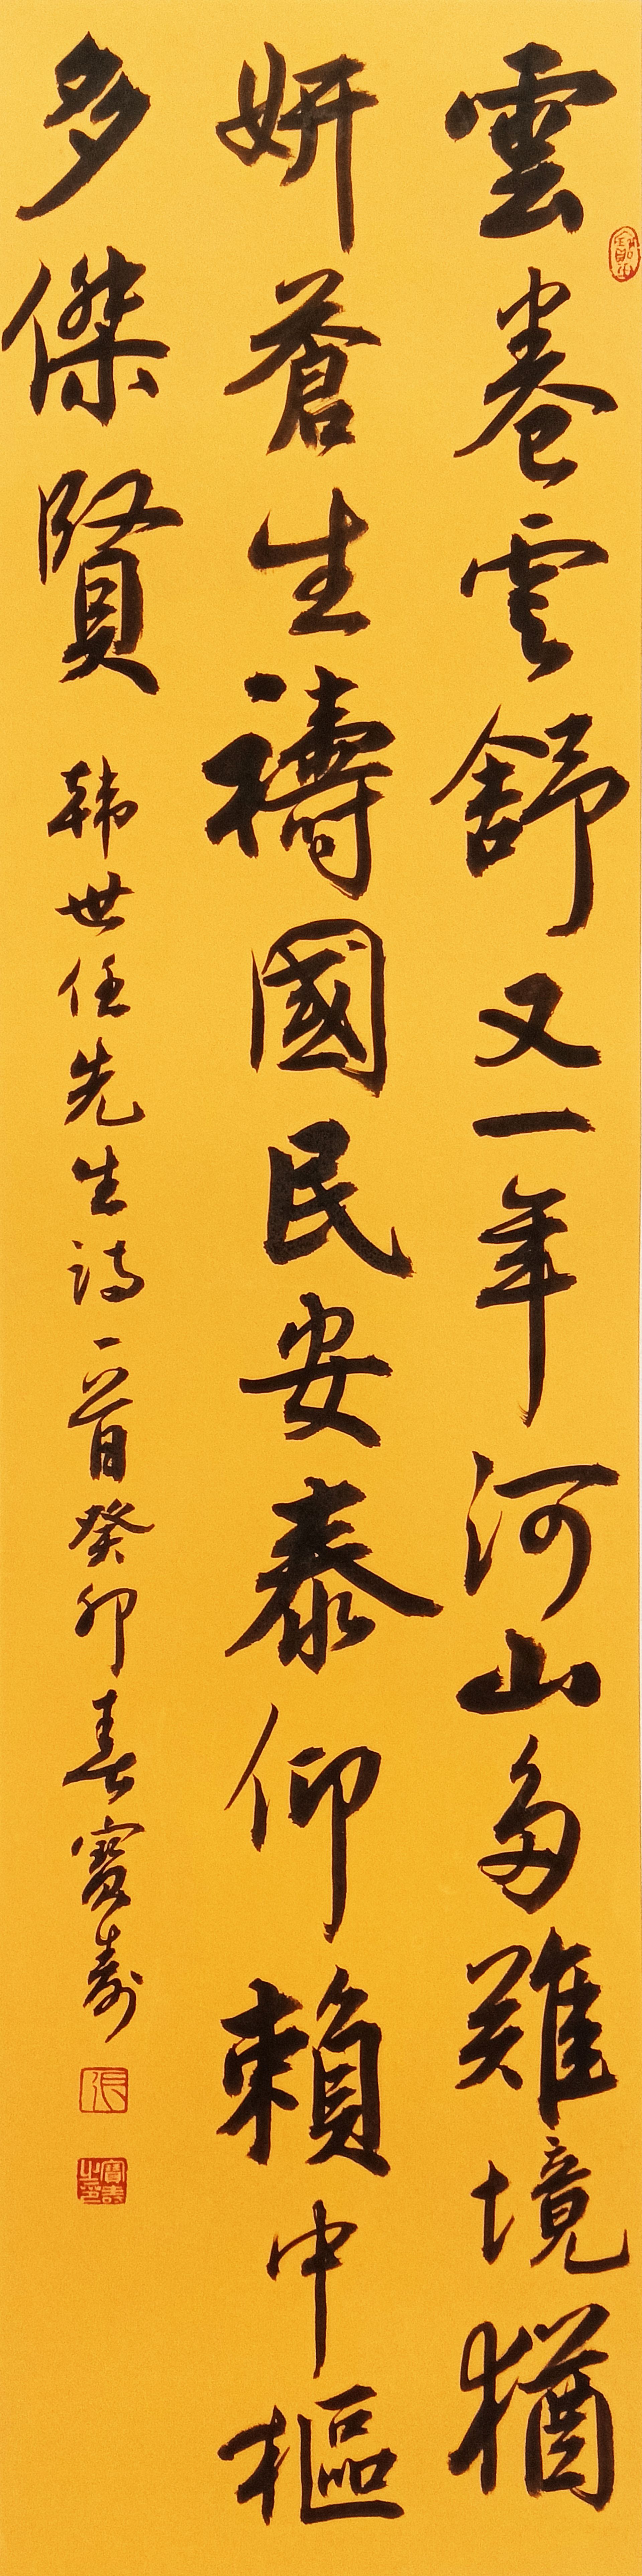 雲卷雲舒又一年河山多難境猶
妍蒼生禱國民安泰仰賴中樞
多傑賢
韩世任先生诗一首癸卯春寶壽
張
寶壽之印